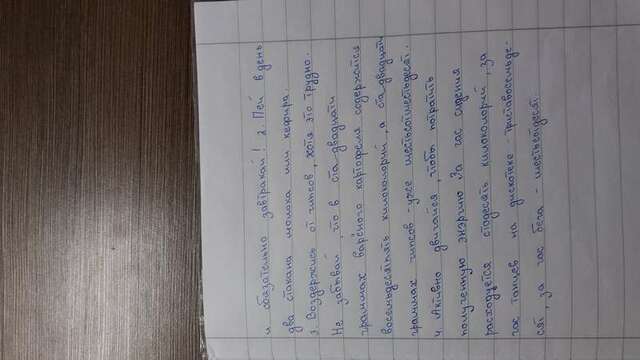 и обязательно завтракай! 2. Пей в день
два стакана молока или кефира.
3. Воздержись от чипсов, хотя это трудно.
Не забывай, что в ста двадцати
граммах варёного картофеля содержится
восемьдесятпять килоколорий, а ста двадцати
граммах чипсов - уже шестьсотшестьдесят.
4. Активно двигайся, чтобы потратить
полученную энэргию За час сидения
расходуется стодесять килоколорий, за
час танцев на дискотеке - триставосемьде-
сят, за час бега - шестьсотдесят.